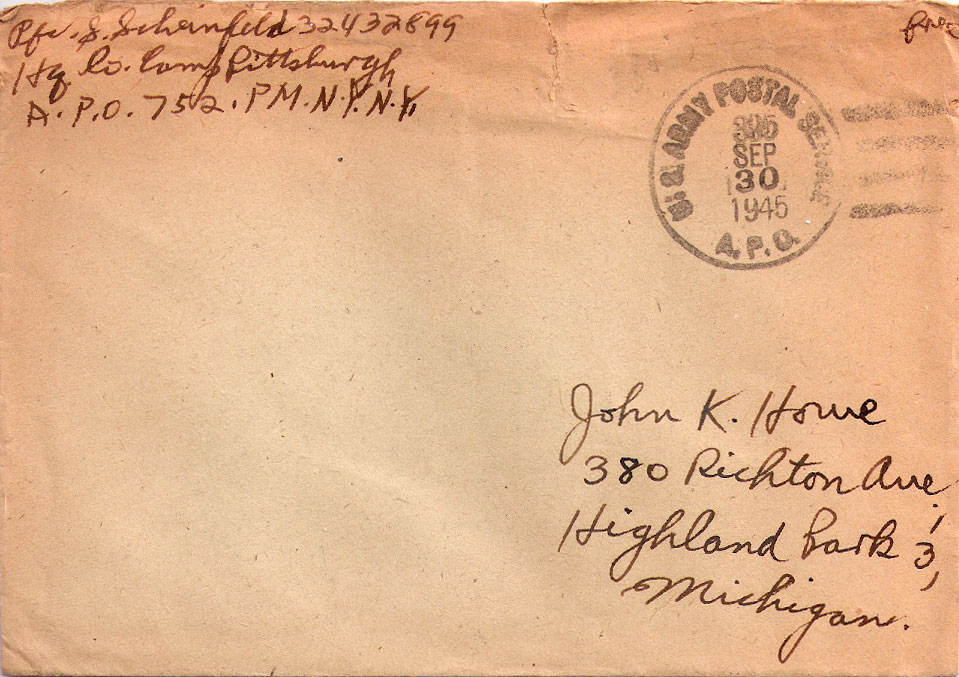 Pfc. S. Scheinfeld 32432899
Hq. Co. Camp Pittsburgh
A.P.O. 752, P.M. N.Y. N.Y.
free
U.S. ARMY POSTAL SERVICE
SEP
30
1945
A.P.O.
John K. Howe
380 Richton Ave.,
Highland Park 3,
Michigan.